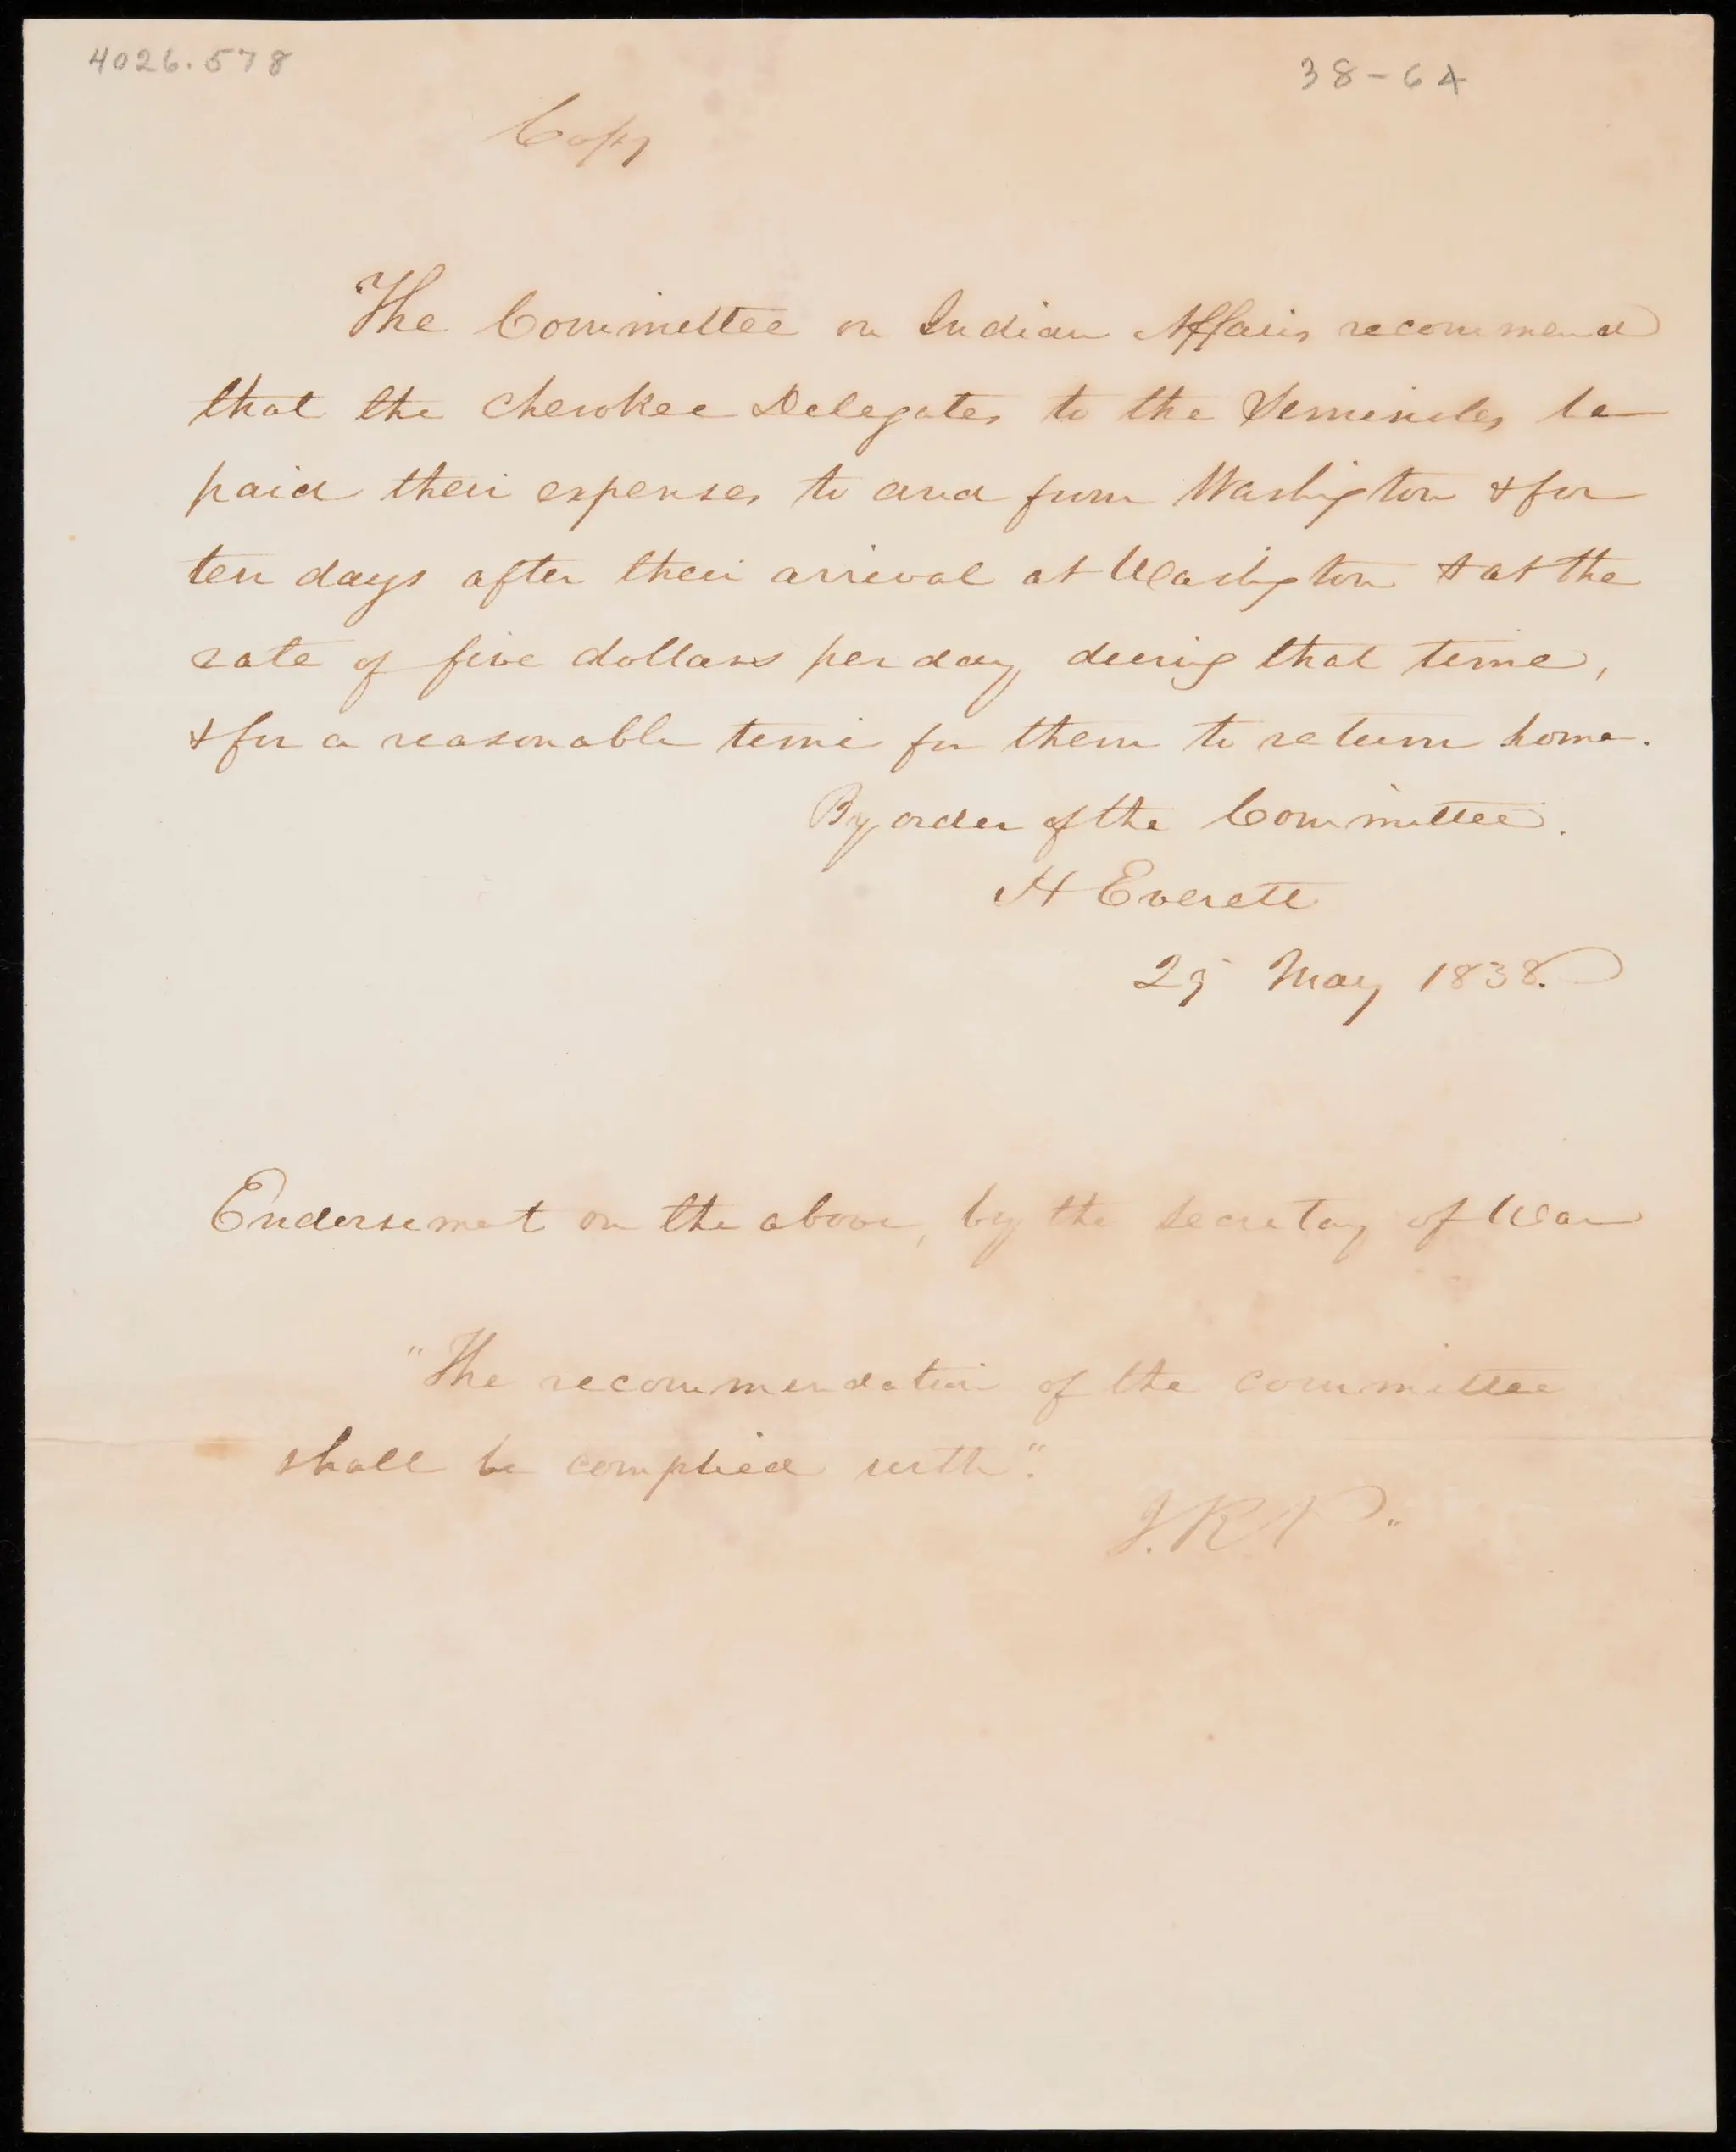 4026.578
38-64
Copy
The Committee on Indian Affairs recommend
that the Cherokee Delegates to the Seminoles be
paid their expenses to and from Washington & for
ten days after their arrival at Washington & at the
rate of five dollars per day during that time,
& for a reasonable time for them to return home.
By order of the Committee.
H Everett
29 May 1838.
Endorsement on the above, by the Secretary of War
"The recommendation of the committee
shall be complied with."
J.R.P."